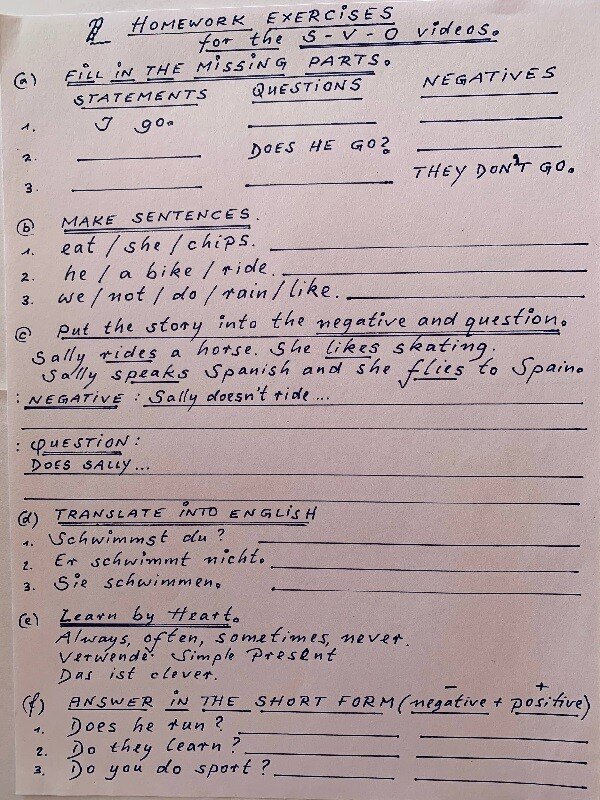 HOMEWORK EXERCISES
for the S-V-O videos.
(a) FILL IN THE MISSING PARTS.
STATEMENTS QUESTIONS NEGATIVES
1. I go.
2. DOES HE GO?
3. THEY DON'T GO.
(b) MAKE SENTENCES.
1. eat / she / chips.
2. he / a bike / ride.
3. we / not / do / rain / like.
(c) Put the story into the negative and question.
Sally rides a horse. She likes skating.
Sally speaks Spanish and she flies to Spain.
: NEGATIVE : Sally doesn't ride ...
: QUESTION :
DOES SALLY ...
(d) TRANSLATE INTO ENGLISH
1. Schwimmst du?
2. Er schwimmt nicht.
3. Sie schwimmen.
(e) Learn by Heart.
Always, often, sometimes, never.
Verwende: Simple Present
Das ist clever.
(f) ANSWER IN THE SHORT FORM (negative + positive)
1. Does he run?
2. Do they learn?
3. Do you do sport?